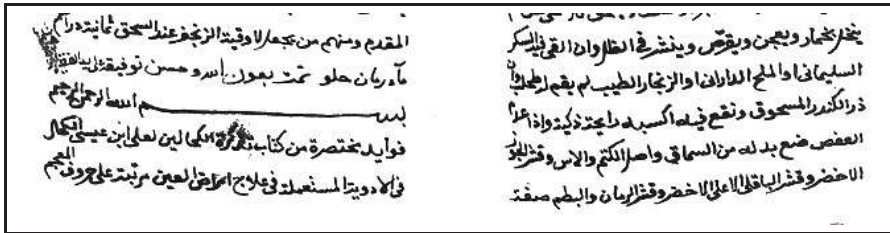 ينخل بخمار ويعجن ويقرص وينشر في الظل وان القي فيه السكر
السليماني او الملح الداراني او الزنجار الطيب لم يقم
ذر الكندر المسحوق ونقع فيه اكسبه رايحة ذكية واذا عدم
العفص ضع بدله من السماق واصل الكتم والاس وقشر الجوز
الاخضر وقشر الباقلى الاعلى الاخضر وقشر الرمان والبطم صفة
المقدم ومنهم من يجعل لاوقية الزنجفر عند السحق ثمانية دراهم
مآء رمان حلو تمت بعون الله وحسن توفيقه
بسم الله الرحمن الرحيم
فوايد مختصرة من كتاب تذكرة الكحالين لعلي ابن عيسى الكحال
في الادوية المستعملة في علاج امراض العين مرتبة على حروف المعجم